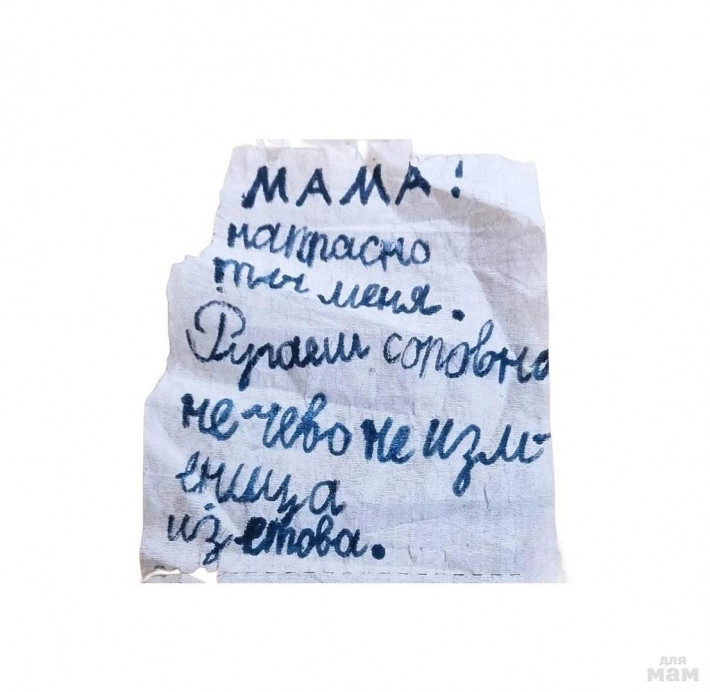 МАМА!
напрасно
ты меня.
Ругаеш соровно
нечево не изм-
еница
из етова.
для
мам